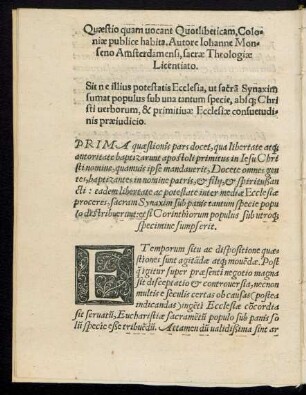 Quæstio quam uocant Quotlibeticam, Colo-
niæ publice habita, Autore Iohanne Mon-
seno Amsterdamensi, sacræ Theologiæ
Licentiato.
Sit ne illius potestatis Ecclesia, ut sacrã Synaxim
sumat populus sub una tantum specie, absq; Chri
sti uerborum, & primitiuæ Ecclesiæ consuetudi-
nis præiudicio.
PRIMA quæstionis pars docet, qua libertate atq;
autoritate baptizarunt apostoli primitus in Iesu Chri
sti nomine, quamuis ipse mandauerit, Docete omnes gen
tes, baptizantes in nomine patris, & filij, & spiritus san
cti: eadem libertate ac potestate inter media Ecclesiæ
proceres, sacram Synaxim sub panis tantum specie popu
lo distribuerunt: etsi Corinthiorum populus sub utroq;
specimine sumpserit.
E Temporum situ ac dispositione quæ
stiones sunt agitãdæ atq; mouẽdæ. Post
q̃ igitur super præsenti negotio magna
sit disceptatio & controuersia, necnon
multis e seculis certas ob causas (postea
indicandas) ungẽti Ecclesiæ cõcordia
sit seruatũ, Eucharistiæ sacramẽtũ populo sub panis so
lĩ specie eße tribuẽdũ. Attamen dũ ualidissima sint ar